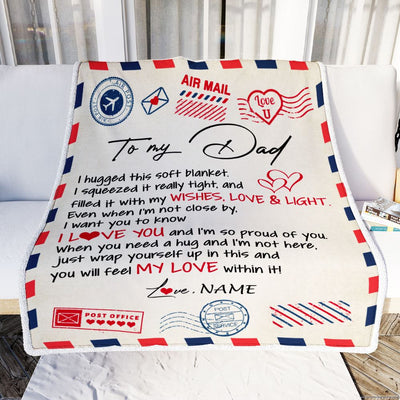 AIR MAIL
Love
U
To my Dad
I hugged this soft blanket.
I squeezed it really tight, and
filled it with my WISHES, LOVE & LIGHT.
Even when I'm not close by.
I want you to know
I L❤VE YOU and I'm so proud of you.
When you need a hug and I'm not here,
just wrap yourself up in this and
you will feel MY LOVE within it!
Love, NAME
POST OFFICE
POST
SERVICE